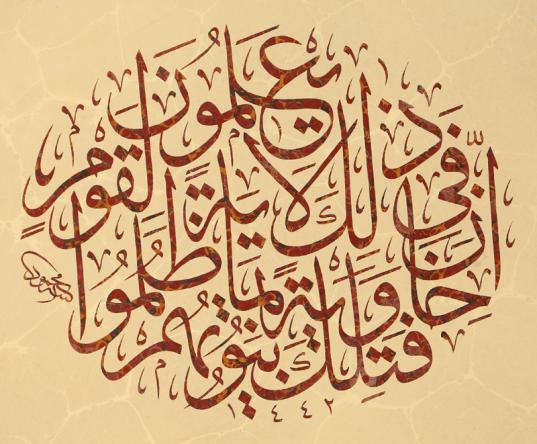 فَتِلْكَ بُيُوتُهُمْ
خَاوِيَةً بِمَا ظَلَمُوا
إِنَّ فِي ذَٰلِكَ لَآيَةً لِقَوْمٍ
يَعْلَمُونَ
١٤٤٢